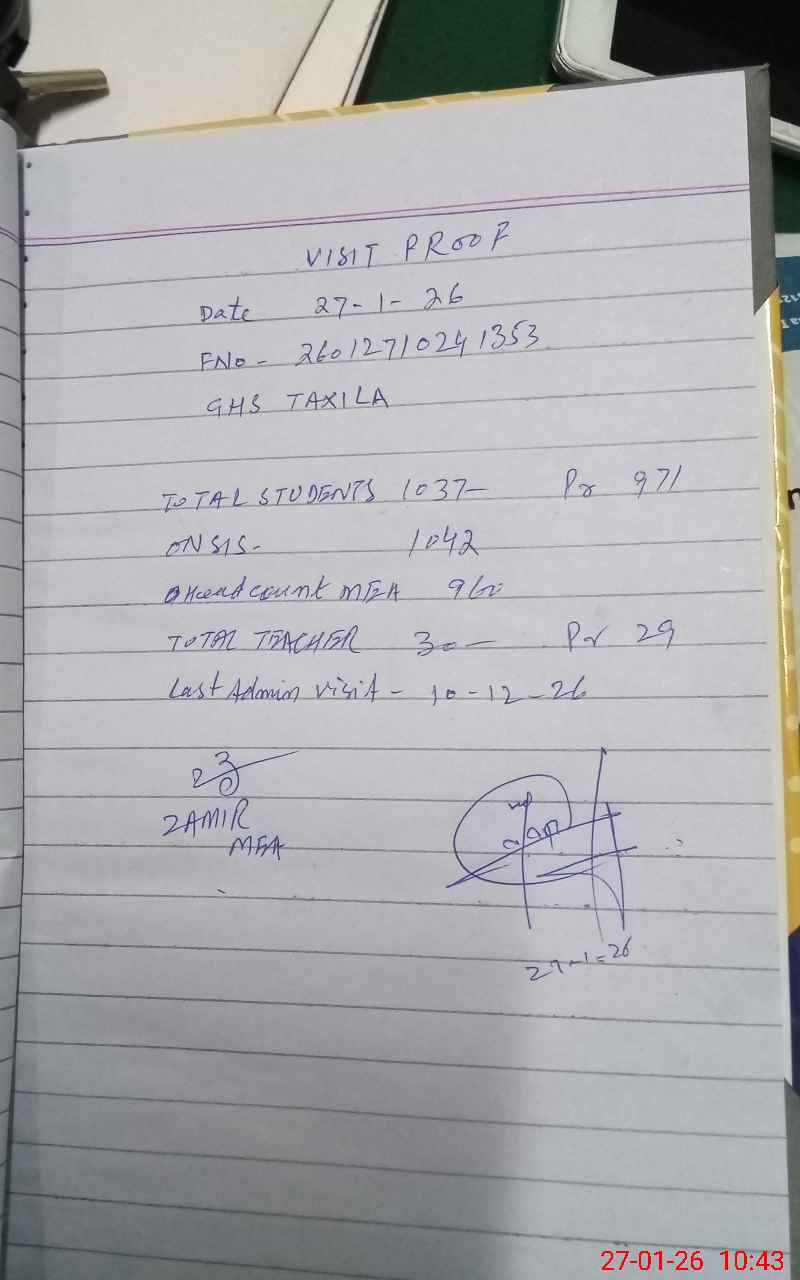 VISIT PROOF
Date 27-1-26
FNo - 26012710241353
GHS TAXILA
TOTAL STUDENTS 1037- Pr 971
ON SIS- 1042
Headcount MEA 960
TOTAL TEACHER 30- Pr 29
Last Admin visit - 10-12-26
ZAMIR
MEA
27-1-26
27-01-26 10:43